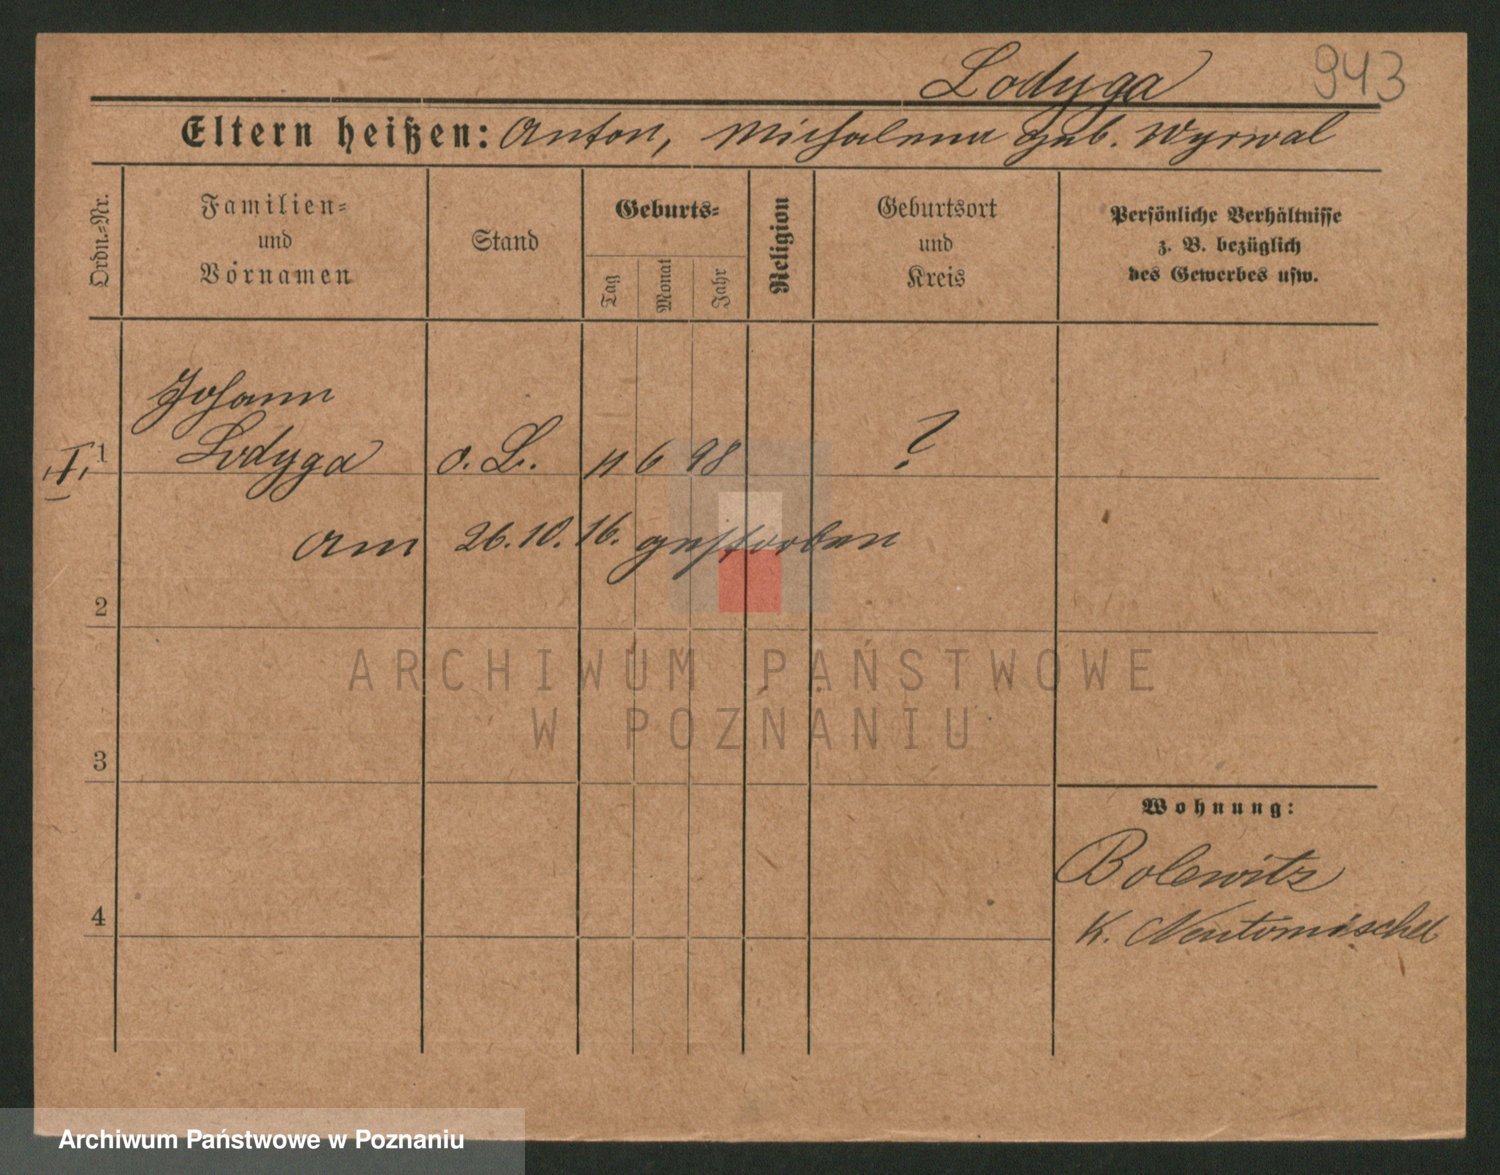 Lodyga 943
Eltern heißen: Anton, Michalena geb. Wyrwal
Ordn.-Nr.
Familien-
und
Vornamen
Stand
Geburts-
Tag
Monat
Jahr
Religion
Geburtsort
und
Kreis
Persönliche Verhältnisse
z. B. bezüglich
des Gewerbes usw.
Johann
I. 1 Lodyga o. L. 11 6 98 ?
am 26.10.16. gestorben
2
ARCHIWUM PAŃSTWOWE
W POZNANIU
3
Wohnung:
Bolewitz
4
K. Neutomischel
Archiwum Państwowe w Poznaniu